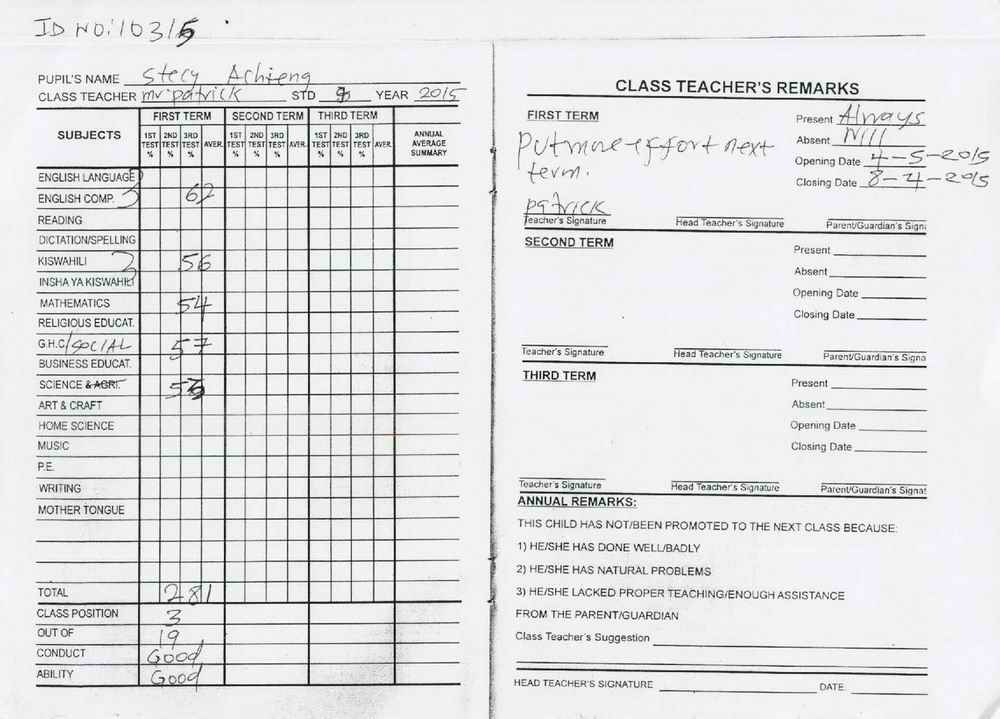 ID NO: 10315
PUPIL'S NAME Stecy Achieng
CLASS TEACHER mr patrick STD YEAR 2015
SUBJECTS FIRST TERM SECOND TERM THIRD TERM ANNUAL AVERAGE SUMMARY
1ST TEST % 2ND TEST % 3RD TEST % AVER. 1ST TEST % 2ND TEST % 3RD TEST % AVER. 1ST TEST % 2ND TEST % 3RD TEST % AVER.
ENGLISH LANGUAGE
ENGLISH COMP. 62
READING
DICTATION/SPELLING
KISWAHILI 56
INSHA YA KISWAHILI
MATHEMATICS 54
RELIGIOUS EDUCAT.
G.H.C/SOCIAL 57
BUSINESS EDUCAT.
SCIENCE & AGRI.
ART & CRAFT
HOME SCIENCE
MUSIC
P.E.
WRITING
MOTHER TONGUE
TOTAL 281
CLASS POSITION 3
OUT OF 19
CONDUCT Good
ABILITY Good
CLASS TEACHER'S REMARKS
FIRST TERM
Present Always
Absent Nill
Opening Date 4-5-2015
Closing Date 8-4-2015
Put more effort next
term.
patrick
Teacher's Signature Head Teacher's Signature Parent/Guardian's Sign
SECOND TERM
Present
Absent
Opening Date
Closing Date
Teacher's Signature Head Teacher's Signature Parent/Guardian's Signa
THIRD TERM
Present
Absent
Opening Date
Closing Date
Teacher's Signature Head Teacher's Signature Parent/Guardian's Signat
ANNUAL REMARKS:
THIS CHILD HAS NOT/BEEN PROMOTED TO THE NEXT CLASS BECAUSE:
1) HE/SHE HAS DONE WELL/BADLY
2) HE/SHE HAS NATURAL PROBLEMS
3) HE/SHE LACKED PROPER TEACHING/ENOUGH ASSISTANCE
FROM THE PARENT/GUARDIAN
Class Teacher's Suggestion
HEAD TEACHER'S SIGNATURE DATE